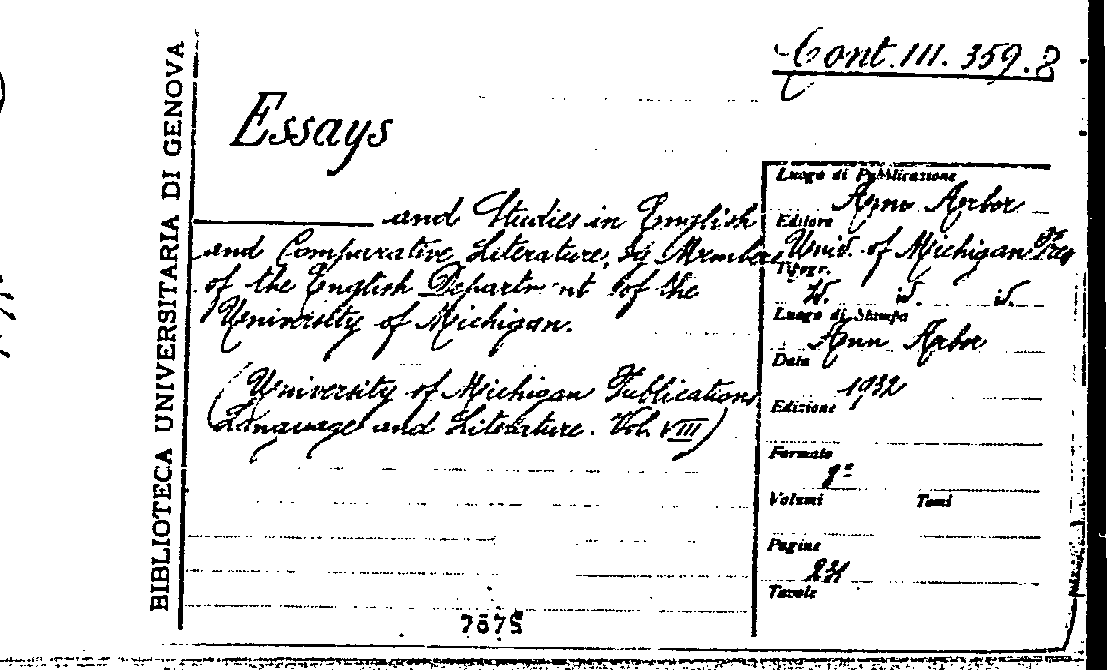 BIBLIOTECA UNIVERSITARIA DI GENOVA
Cont. III. 359. 8
Essays
and Studies in English
and Comparative Literature, by Members
of the English Department of the
University of Michigan.
(University of Michigan Publications
Language and Literature. Vol. VIII)
7875
Luogo di Pubblicazione
Ann Arbor
Editore
Univ. of Michigan Press
Tipogr.
id. id. id.
Luogo di Stampa
Ann Arbor
Data
1932
Edizione
Formato
8°
Volumi Tomi
Pagine
Tavole